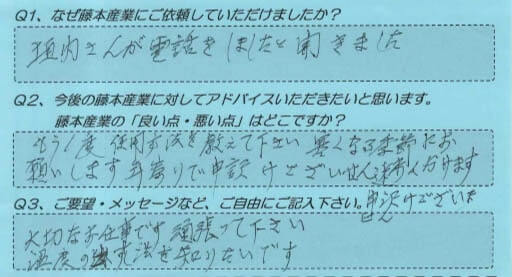 Q1、なぜ藤本産業にご依頼していただけましたか？
垣内さんが電話をしましたと聞きました
Q2、今後の藤本産業に対してアドバイスいただきたいと思います。
藤本産業の「良い点・悪い点」はどこですか？
もう1度使用方法を教えて下さい 寒くなる季節にお
願いします 年寄りで申訳けございせん 迷惑かけます
Q3、ご要望・メッセージなど、ご自由にご記入下さい。
申訳けございま
せん
大切なお仕事です 頑張って下さい
温度の 方法を知りたいです